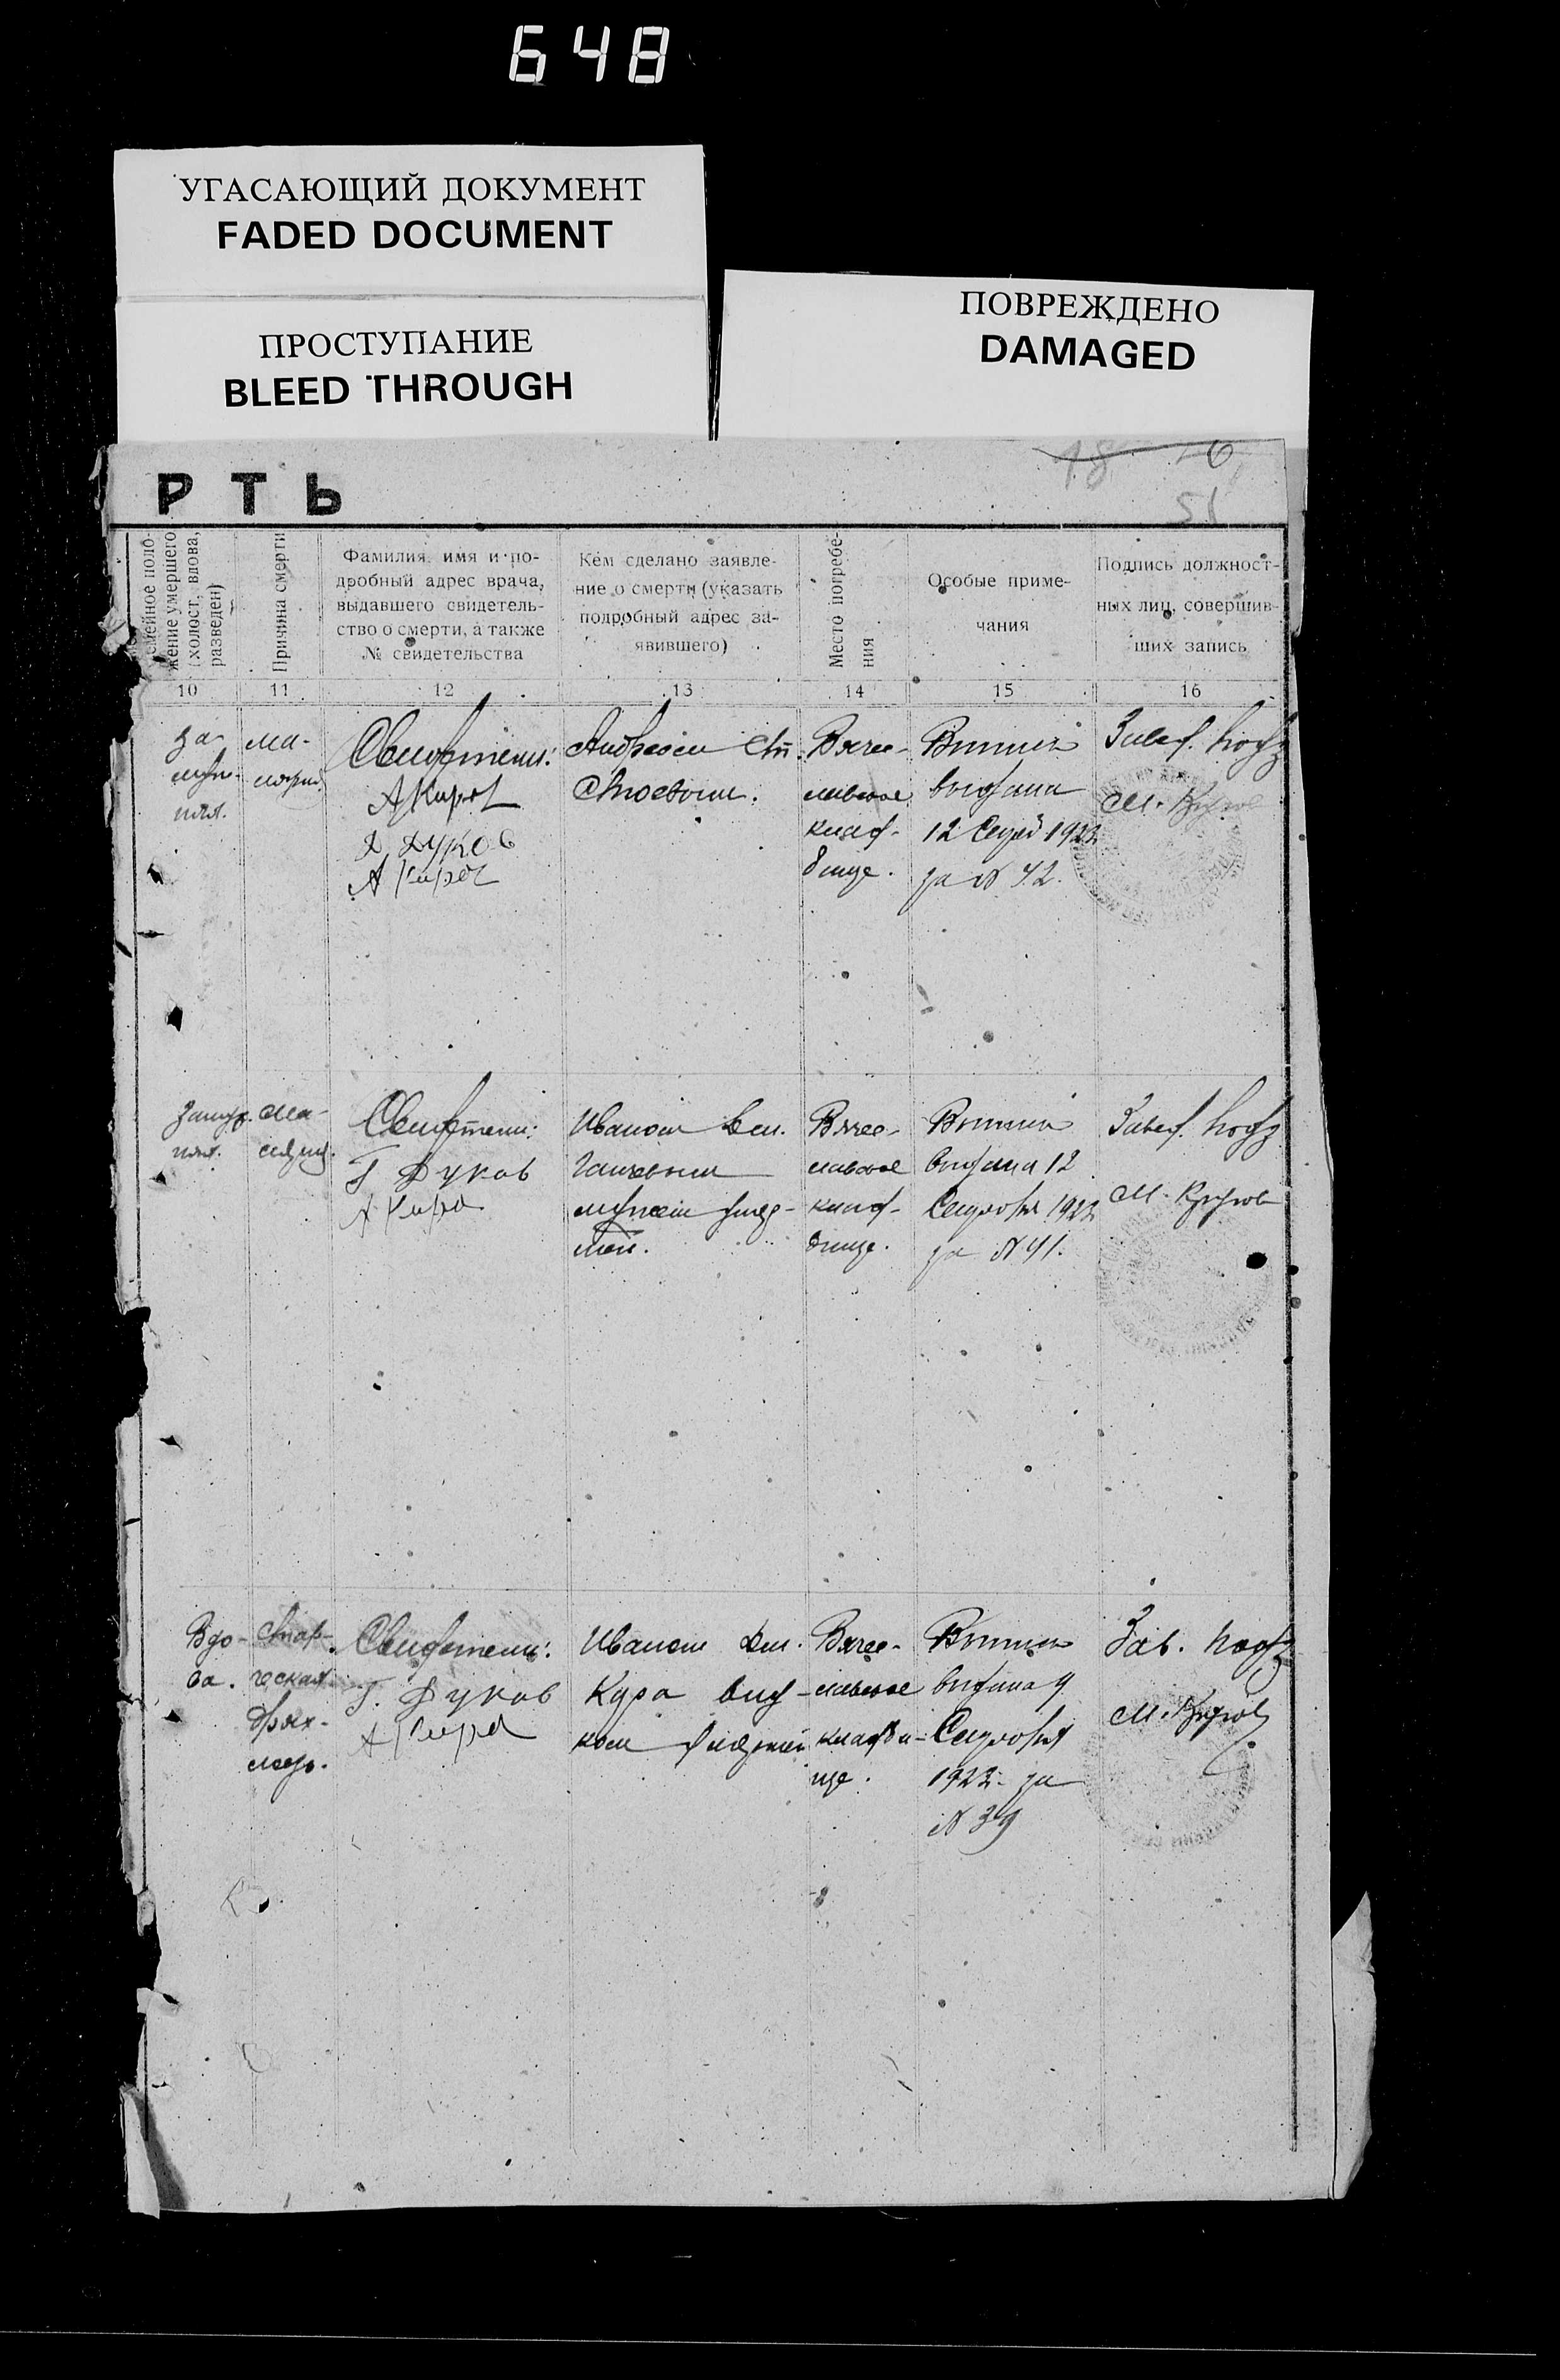 648
УГАСАЮЩИЙ ДОКУМЕНТ
FADED DOCUMENT
ПРОСТУПАНИЕ
BLEED THROUGH
ПОВРЕЖДЕНО
DAMAGED
18
51
РТЬ
Семейное поло-
жение умершего
(холост, вдова,
разведен)
Причина смерти
Фамилия, имя и по-
дробный адрес врача,
выдавшего свидетель-
ство о смерти, а также
№ свидетельства
Кем сделано заявле-
ние о смерти (указать
подробный адрес за-
явившего)
Место погребе-
ния
Особые приме-
чания
Подпись должност-
ных лиц, совершив-
ших запись
10 11 12 13 14 15 16
за-
муж-
няя.
ма-
лярия
Свидетели:
А Киров
Д ДУКОВ
А Киров
Андреем Ст.
Стоевым.
Вячес-
лавское
клад-
бище.
Выпись
выдана
12 Сентяб 1922
за № 42.
Завед. подз
М. Киров
Замуж.
няя.
Ма-
лярия.
Свидетели:
Г Дуков
А Киров
Иваном
мужем умер-
шей.
Вячес-
лавское
клад-
бище.
Выпись
выдана 12
Сентября 1922
за № 41.
Завед. подз
М. Киров
Вдо-
ва.
Стар-
ческая
дрях-
лость.
Свидетели:
Г. Дуков
А Киров
Иваном
Кура внуч-
ком умершей
Вячес-
лавское
кладби-
ще.
Выпись
выдана 9
Сентября
1922 за
№ 39
Зав. подз
М. Киров